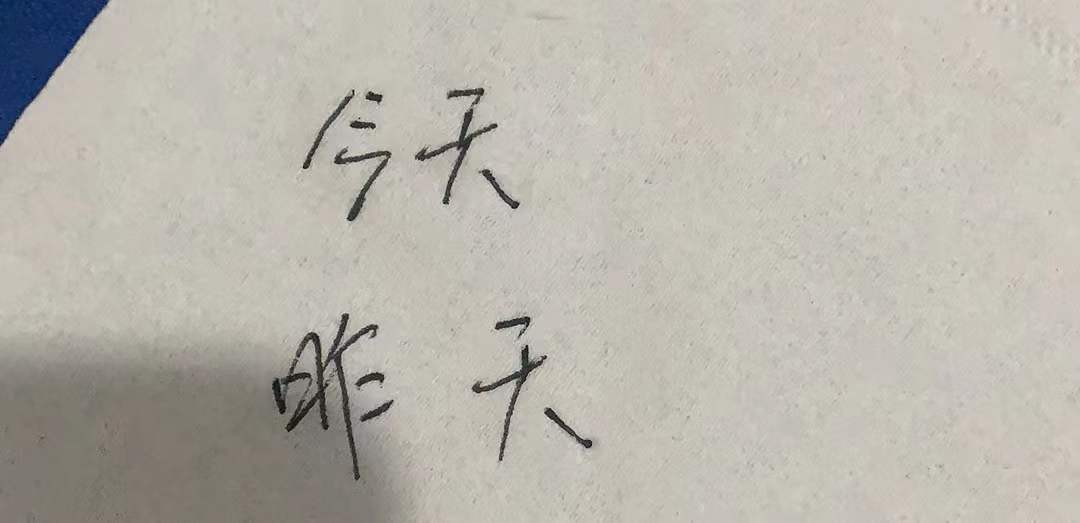 今天
昨天